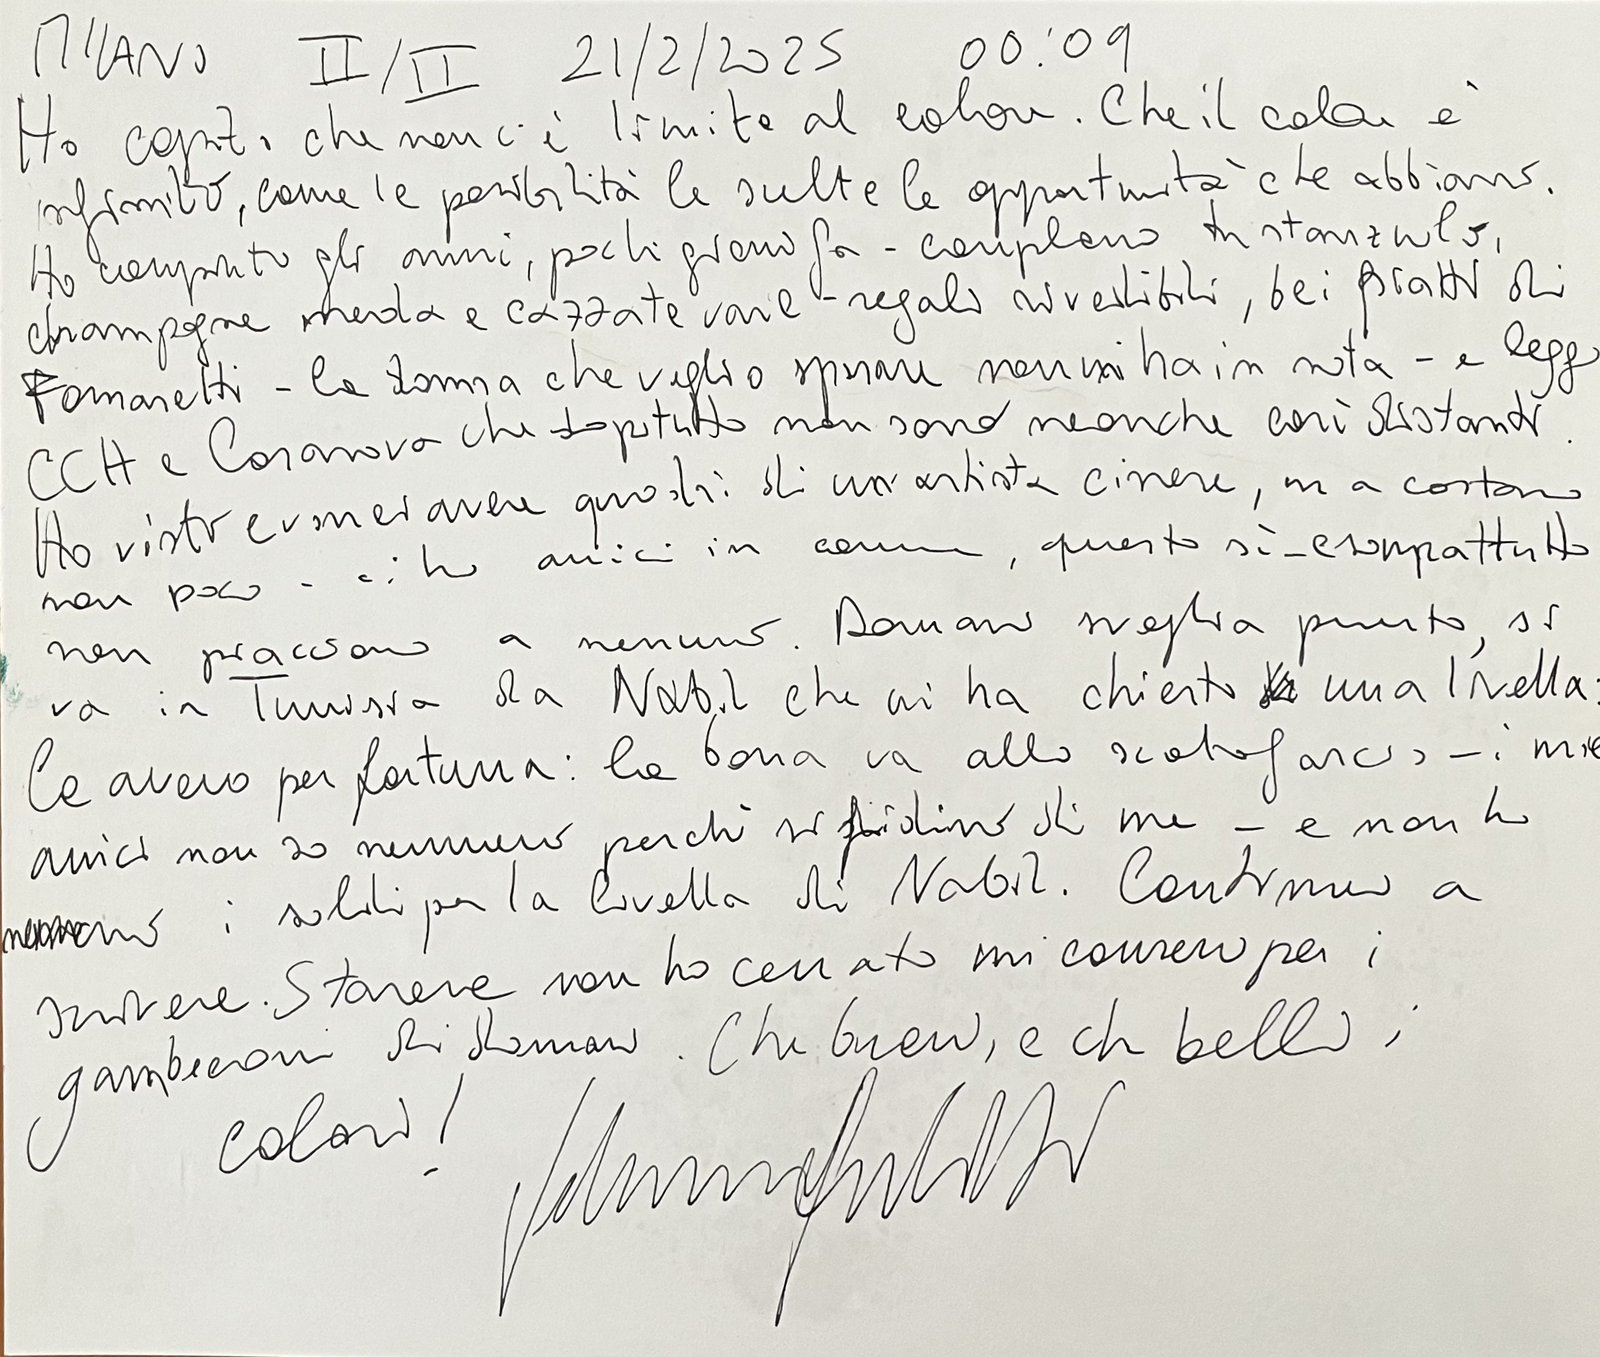 MILANO II/II 21/2/2025 00:09
Ho capito che non c'è limite al colore. Che il colore è
infinito, come le possibilità le scelte le opportunità che abbiamo.
Ho compiuto gli anni, pochi giorni fa - compleanno
champagne merda e cazzate varie - regali, bei piatti di
Fornasetti - la donna che voglio sposare non mi ha in nota - e leggo
CCH e Casanova che dopotutto non sono neanche così distanti.
Ho visto e vorrei avere quadri di un artista cinese, ma costano
non poco - amici in comune, questo sì - e soprattutto
non piacciono a nessuno. Domani sveglia presto, si
va in Tunisia da Nabil che mi ha chiesto una livella:
Ce l'avevo per fortuna: la borsa va allo - i miei
amici non so nemmeno perchè si fidino di me - e non ho
nemmeno i soldi per la livella di Nabil. Continuo a
scrivere. Stasera non ho cenato mi conservo per i
gamberoni di domani. Che buoni, e che belli i
colori!